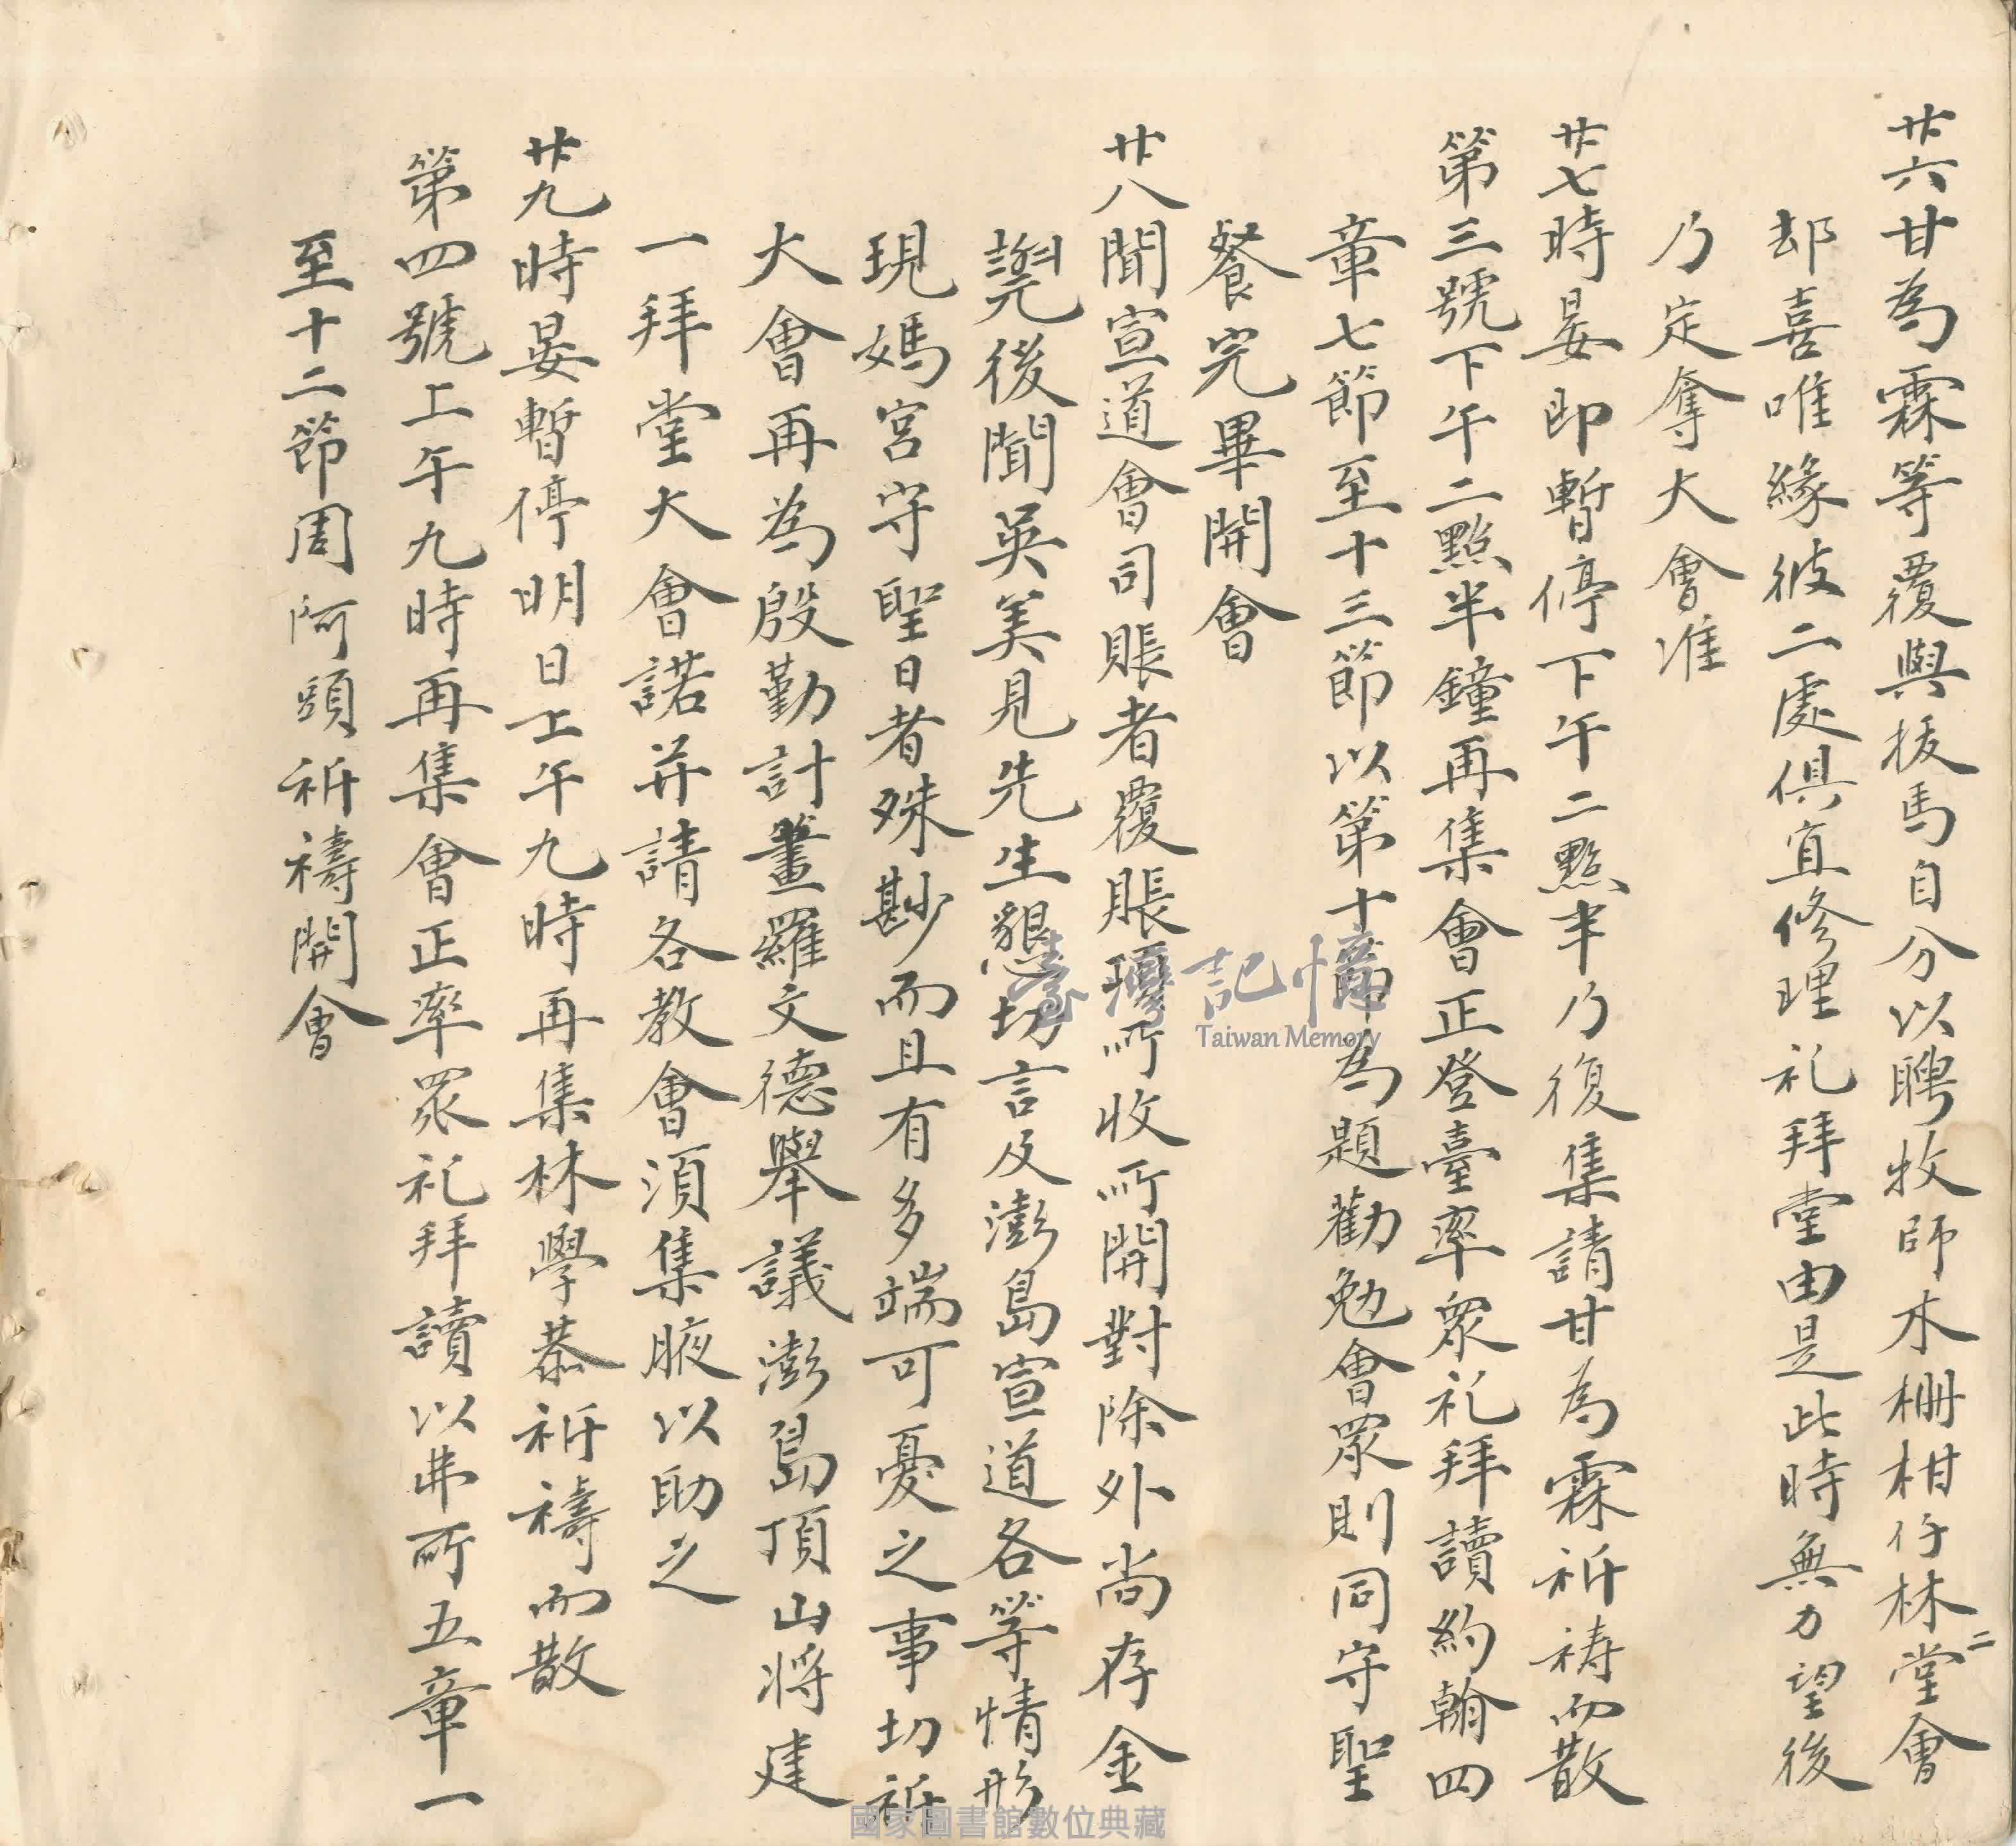 廿六甘為霖等覆與拔馬自分以聘牧師木柵柑仔林二堂會
却喜唯緣彼二處俱宜修理礼拜堂由是此時無力望後
乃定奪大會准
廿七時晏即暫停下午二點半乃復集請甘為霖祈禱而散
第三號下午二點半鐘再集會正登臺率眾礼拜讀約翰四
章七節至十三節以第十節為題勸勉會眾則同守聖
餐完畢開會
廿八聞宣道會司賬者覆賬項所收所開對除外尚存金
後聞英美見先生懇切言及澎島宣道各等情形
現媽宮守聖日者殊尠而且有多端可憂之事切祈
大會再為殷勤計畫羅文德舉議澎島頂山將建
一拜堂大會諾并請各教會須集腋以助之
廿九時晏暫停明日上午九時再集林學恭祈禱而散
第四號上午九時再集會正率眾礼拜讀以弗所五章一
至十二節周阿頭祈禱開會
臺灣記憶
Taiwan Memory
國家圖書館數位典藏